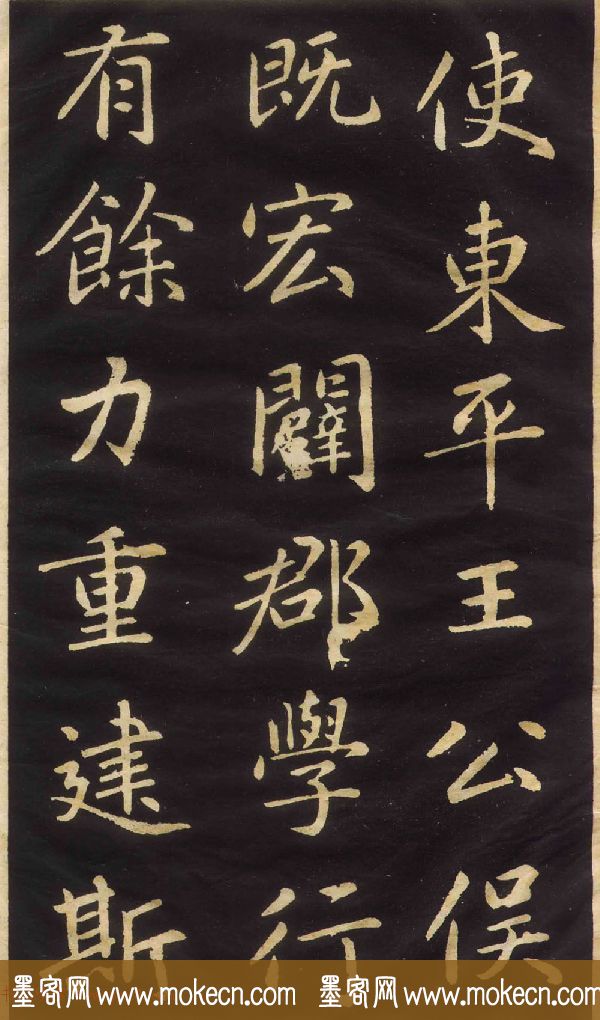 使東平王公俣
既宏闢郡學行
有餘力重建斯
墨客网 www.mokecn.com 墨客网 www.mokecn.com